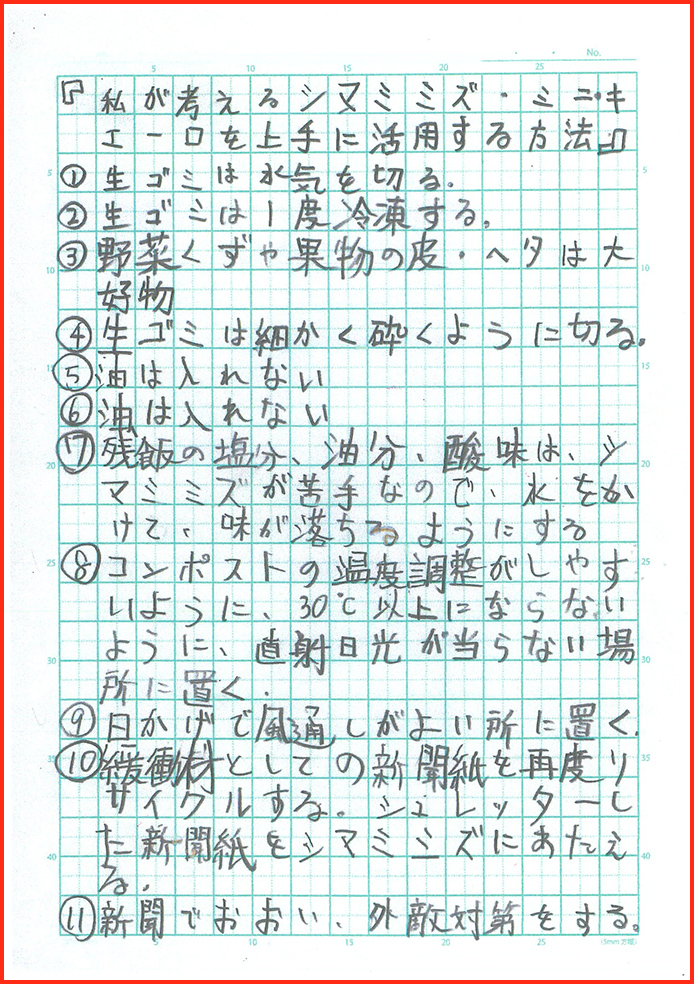 『私が考えるシマミミズ・ミニ・キ
エーロを上手に活用する方法』
①生ゴミは水気を切る。
②生ゴミは1度冷凍する。
③野菜くずや果物の皮・ヘタは大
好物
④生ゴミは細かく砕くように切る。
⑤油は入れない
⑥油は入れない
⑦残飯の塩分、油分、酸味は、シ
マミミズが苦手なので、水をか
けて、味が落ちるようにする
⑧コンポストの温度調整がしやす
いように、30℃以上にならない
ように、直射日光が当らない場
所に置く.
⑨日かげで風通しがよい所に置く.
⑩緩衝材としての新聞紙を再度リ
サイクルする。シュレッターし
た新聞紙をシマミミズにあたえ
る.
⑪新聞でおおい、外敵対策をする。
No.
5 10 15 20 25
5
10
15
20
25
30
35
40
5 10 15 20 25